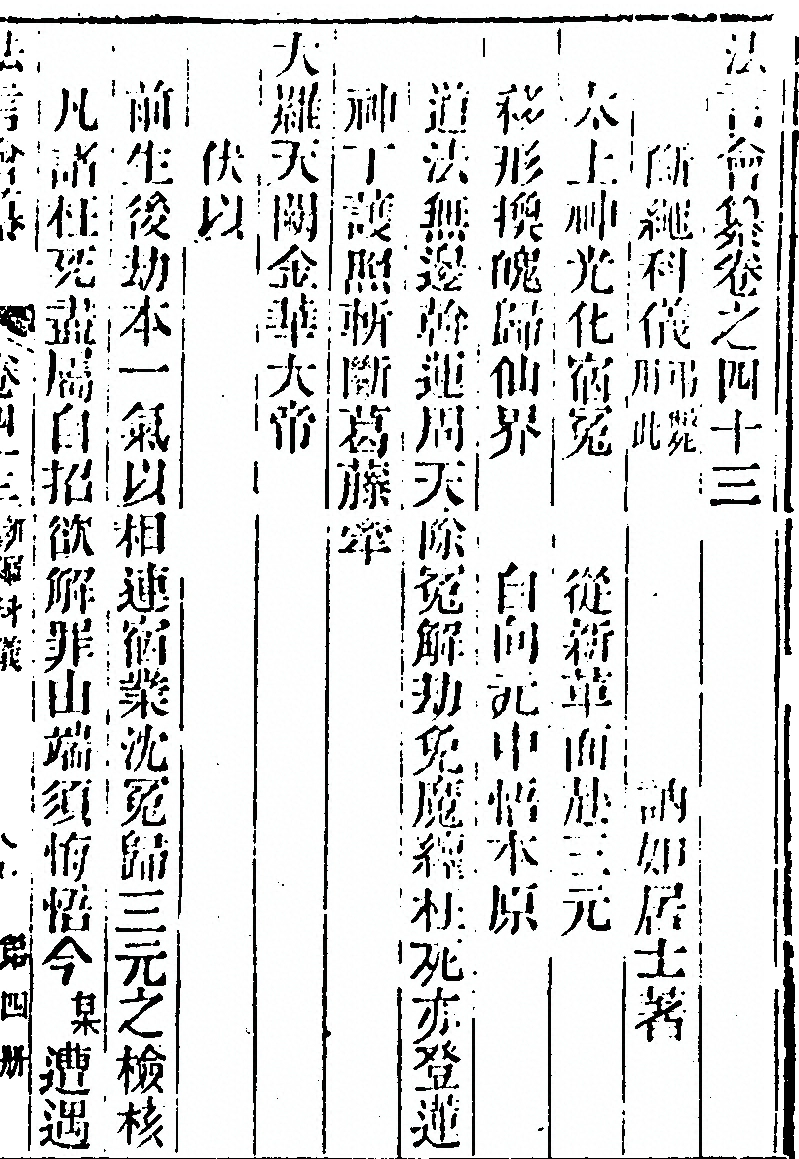 法言會纂卷之四十三
斷繩科儀 弔斃用此 訥如居士著
太上神光化宿冤 從新革面赴三元
移形換魄歸仙界 自向元中悟本原
道法無邊幹運周天除冤解劫免魔纏枉死亦登蓮
神丁護照斬斷葛藤牽
大羅天闕金華大帝
伏以
前生後劫本一氣以相連宿業沈冤歸三元之檢核
凡諸枉死盡屬自招欲解罪山端須悔悟今某遭遇
法言會纂 卷四十三 斷繩科儀 第四册